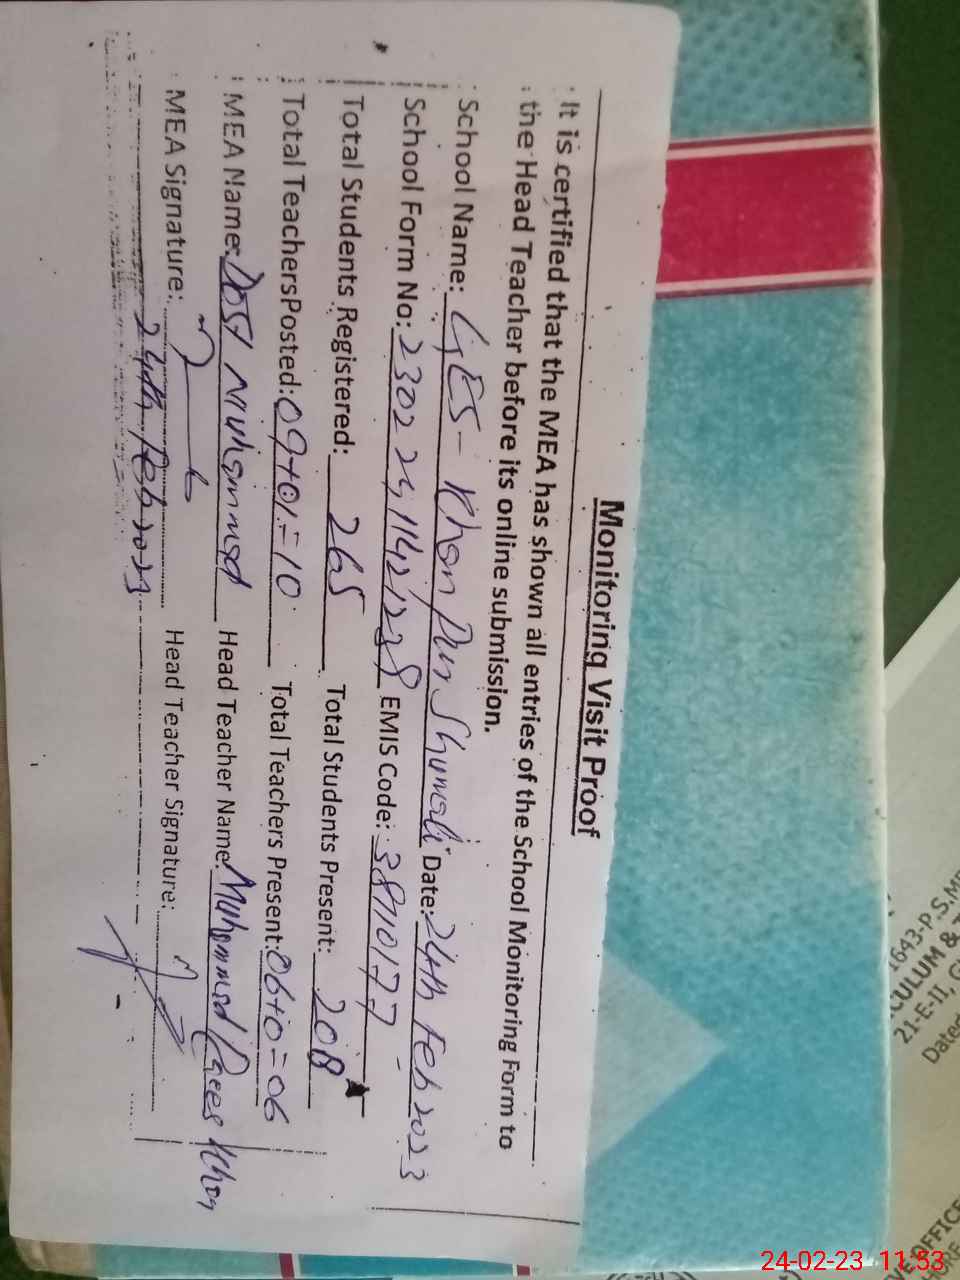 Monitoring Visit Proof
It is certified that the MEA has shown all entries of the School Monitoring Form to
the Head Teacher before its online submission.
School Name: GES - Khan Pur Shumali Date: 24th Feb 2023
School Form No: EMIS Code: 3811077
Total Students Registered: 265 Total Students Present: 208
Total Teachers Posted: 09+01=10 Total Teachers Present: 06+0=06
MEA Name: Dost Muhammad Head Teacher Name: Muhammad Raees Khan
MEA Signature: Head Teacher Signature:
24th Feb 2023
1643-P.S.
CULUM &
21-E-II,
Dated
OFFICE
24-02-23 11:53